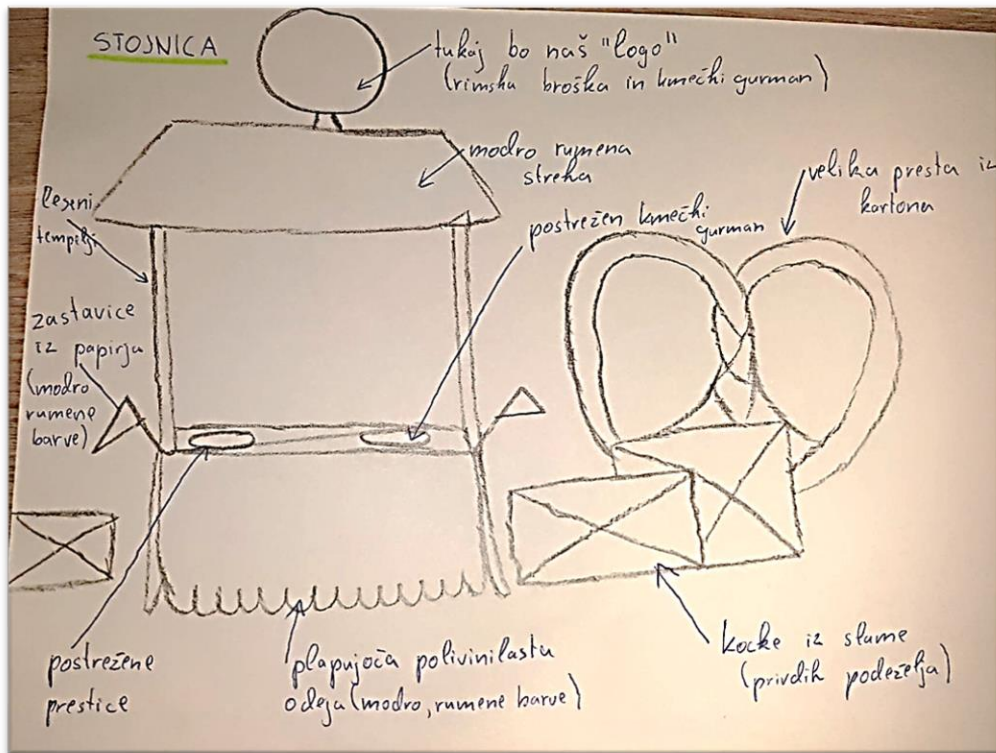 STOJNICA
tukaj bo naš "logo"
(rimska broška in kmečki gurman)
modro rumena
streha
velika presta iz
kartona
leseni
tempelji
postrežen kmečki
gurman
zastavice
iz papirja
(modro
rumene
barve)
postrežene
prestice
plapujoča polivinilasta
odeja (modro, rumene barve)
kocke iz slame
(privdih podeželja)